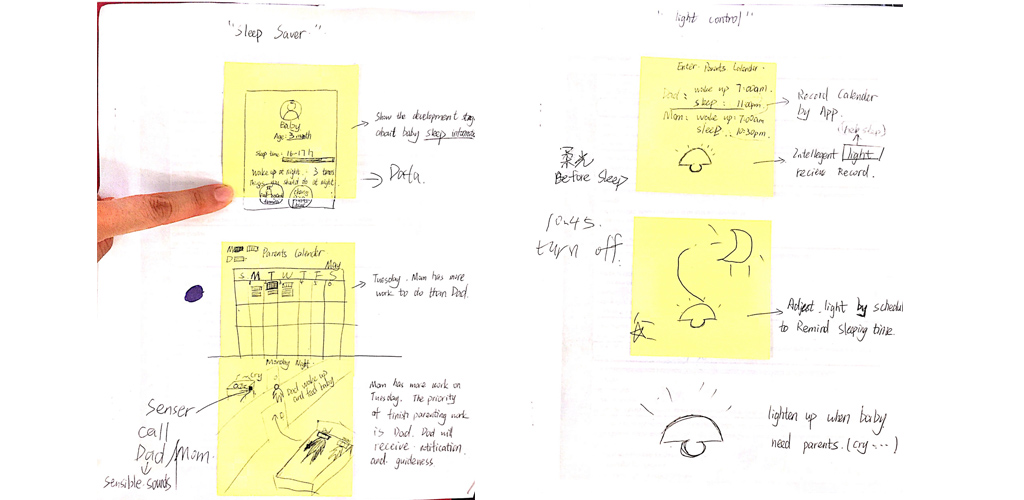 "Sleep Saver"
Baby
Age: 3 month
Sleep time: 16-17 h
Wake up at night: 3 times
Things you should do at night
Show the development stage
about baby sleep
Data.
M
D
Parents Calender
May
S M T W T F S
Tuesday. Mom has more
work to do than Dad.
Monday Night
cry
Dad wake up
and feed baby
Senser
call
Dad/Mom.
Sensible sounds
Mom has more work on
Tuesday. The priority
of finish parenting work
is Dad. Dad will
receive notification
and guideness
"light control"
Enter Parents Calender.
Dad: wake up 7:00am.
sleep: 11:00pm
Mom: wake up: 7:00am
sleep: 10:30pm.
Record Calender
by App.
Intellegent light
recieve Record.
柔光
Before Sleep
10:45.
turn off.
Adjust light by schedul
to Remind sleeping time
lighten up when baby
need parents. (cry ...)